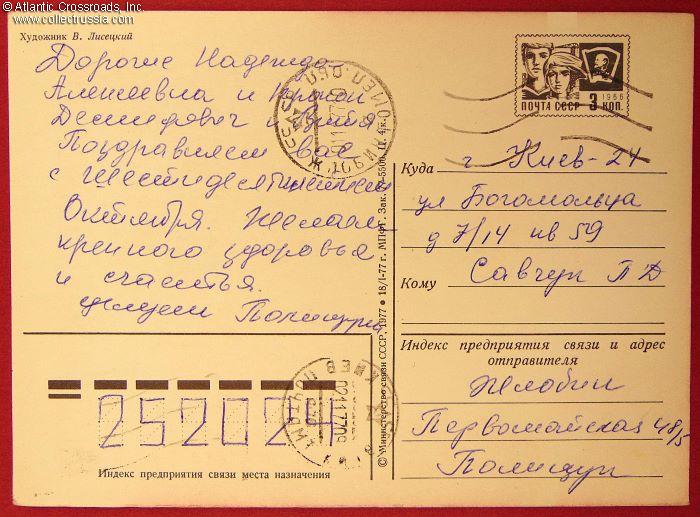 © Atlantic Crossroads, Inc.
www.collectrussia.com
Художник В. Лисецкий
Дорогие Надежда
Алексеевна и Прокоп
Демидович и
Поздравляем вас
с шестидесятилетием
Октября. Желаем
крепкого здоровья
и счастья.
целуем Полищуки
1966
ПОЧТА СССР 3 КОП.
Куда г. Киев-24
ул Богомольца
д 7/14 кв 59
Кому Савчук П Д
Индекс предприятия связи и адрес
отправителя
Жлобин
Первомайская 48/5
Полищук
252024
Индекс предприятия связи места назначения
© Министерство связи СССР, 1977 • 18/I-77 г. МПФГ. Зак. Ц. 4 к.
КИЕВ ПОЧТАМТ